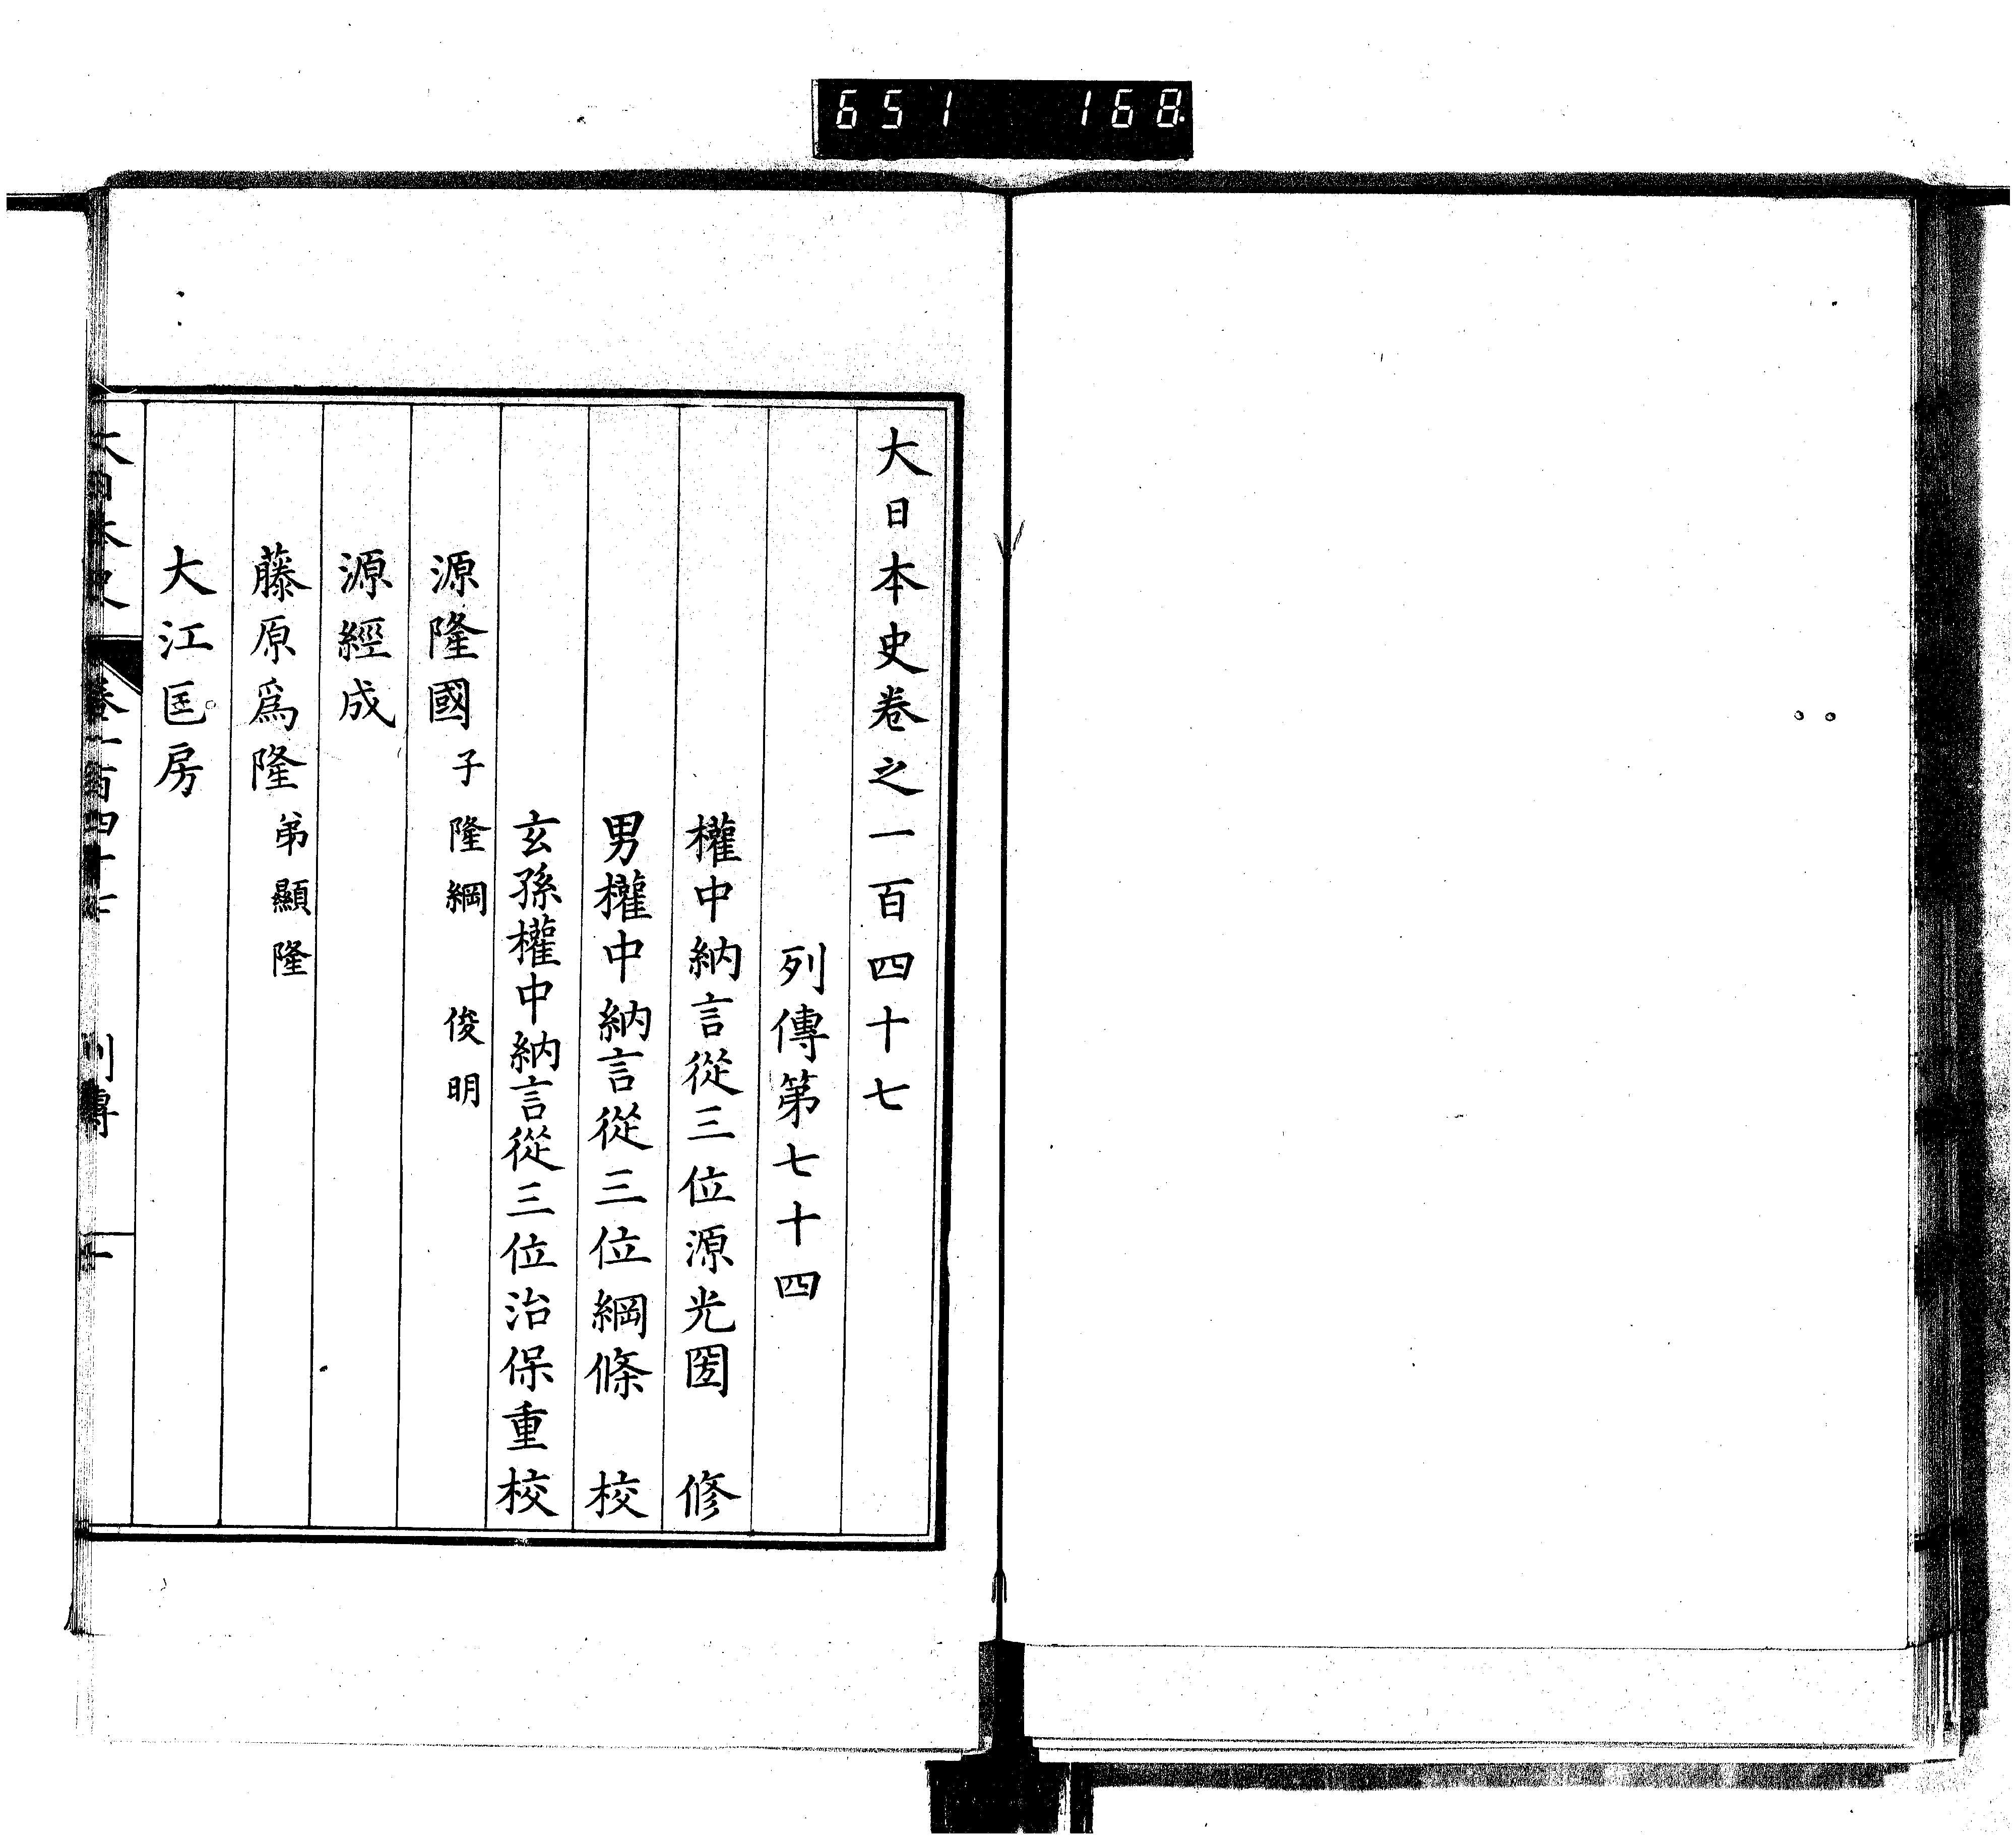 651 168
大日本史卷之一百四十七
列傳第七十四
權中納言從三位源光圀 修
男權中納言從三位綱條 校
玄孫權中納言從三位治保重校
源隆國 子隆綱 俊明
源經成
藤原爲隆 弟顯隆
大江匡房
大日本史 卷一百四十七 列傳 一